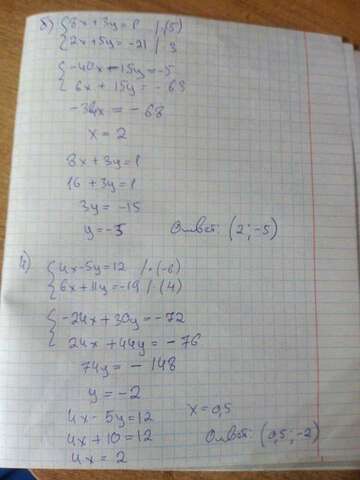 б) {8x+3y=1 /·(5)
{2x+5y=-21 / 3
{-40x-15y=-5
{6x+15y=-63
-34x=-68
x=2
8x+3y=1
16+3y=1
3y=-15
y=-5 Ответ: (2;-5)
{4x-5y=12 /·(-6)
{6x+11y=-19 /·(4)
{-24x+30y=-72
{24x+44y=-76
74y=-148
y=-2
4x-5y=12 x=0,5
4x+10=12 Ответ: (0,5;-2)
4x=2